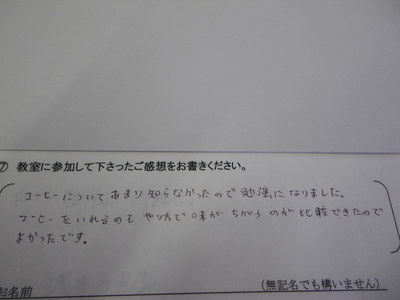 ⑦ 教室に参加して下さったご感想をお書きください。
コーヒーについてあまり知らなかったので勉強になりました。
コーヒーをいれるのもやり方で味がちがうのが比較できたので
よかったです。
お名前
(無記名でも構いません)